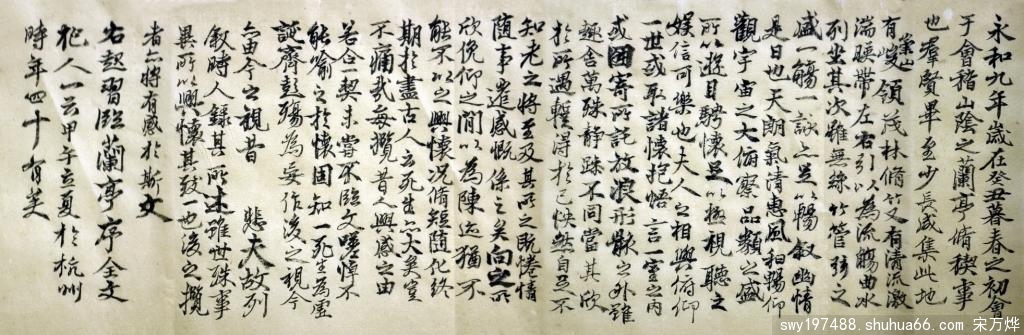 永和九年歲在癸丑暮春之初會
于會稽山陰之蘭亭脩稧事
也羣賢畢至少長咸集此地
有崇山峻領茂林脩竹又有清流激
湍暎帶左右引以為流觴曲水
列坐其次雖無絲竹管弦之
盛一觴一詠亦足以暢敘幽情
是日也天朗氣清惠風和暢仰
觀宇宙之大俯察品類之盛
所以遊目騁懷足以極視聽之
娛信可樂也夫人之相與俯仰
一世或取諸懷抱悟言一室之內
或因寄所託放浪形骸之外雖
趣舍萬殊靜躁不同當其欣
於所遇蹔得於己怏然自足不
知老之將至及其所之既惓情
隨事遷感慨係之矣向之所
欣俛仰之閒以為陳迹猶不
能不以之興懷況脩短隨化終
期於盡古人云死生亦大矣豈
不痛哉每攬昔人興感之由
若合一契未嘗不臨文嗟悼不
能喻之於懷固知一死生為虛
誕齊彭殤為妄作後之視今
亦由今之視昔 悲夫故列
敘時人錄其所述雖世殊事
異所以興懷其致一也後之攬
者亦將有感於斯文
右赵習臨蘭亭序全文
犯人一云甲午立夏於杭州
時年四十有美
swy197488.shuhua66.com 宋万烨